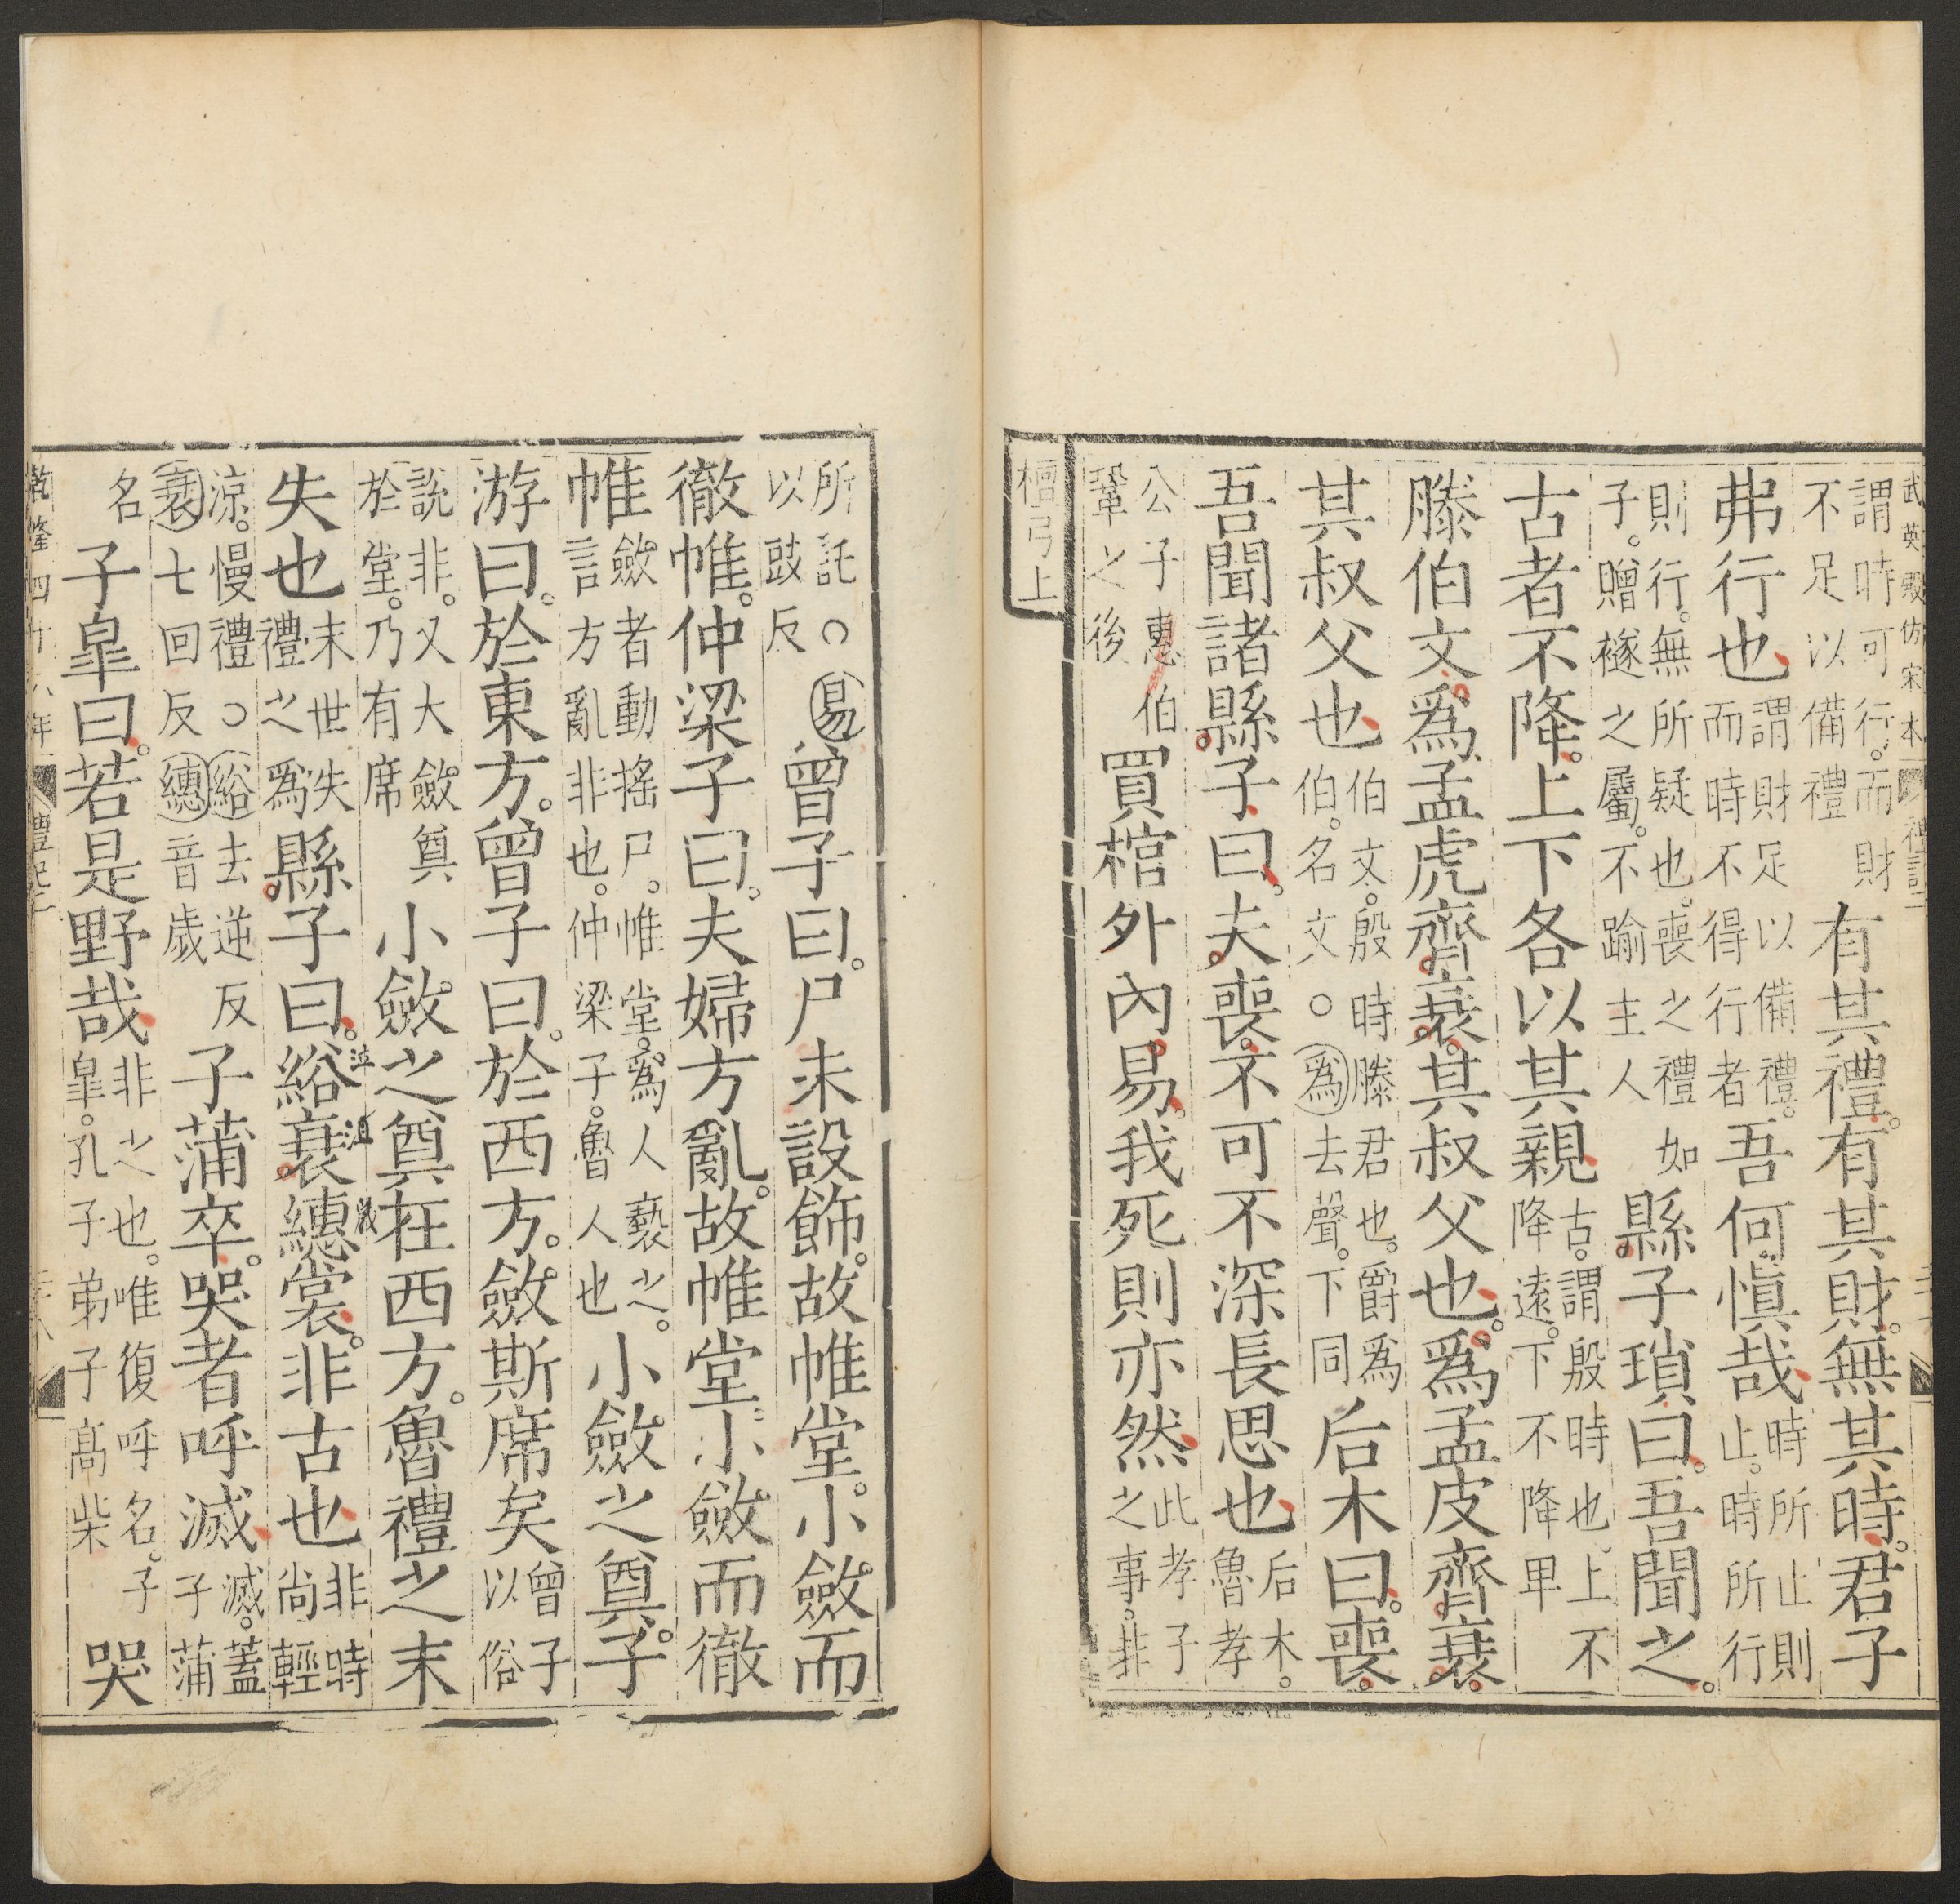 武英殿仿宋本 禮記二
謂時可行。而財不足以備禮有其禮。有其財。無其時。君子
弗行也謂財足以備禮。而時不得行者吾何慎哉時所止則止。時所行
則行。無所疑也。喪之禮如子。贈襚之屬。不踰主人縣子瑣曰。吾聞之。
古者不降。上下各以其親古。謂殷時也。上不降遠。下不降卑
滕伯文爲孟虎齊衰。其叔父也。爲孟皮齊衰。
其叔父也伯文。殷時滕君也。爵爲伯。名文。○爲去聲。下同后木曰。喪。
吾聞諸縣子曰。夫喪。不可不深長思也后木。魯孝
公子惠伯鞏之後買棺外內易。我死則亦然此孝子之事。非
檀弓上
所託○易以豉反曾子曰。尸未設飾。故帷堂。小斂而
徹帷。仲梁子曰。夫婦方亂。故帷堂。小斂而徹
帷斂者動搖尸。帷堂。爲人褻之。言方亂非也。仲梁子。魯人也小斂之奠。子
游曰。於東方。曾子曰。於西方。斂斯席矣曾子以俗
說非。又大斂奠於堂。乃有席小斂之奠在西方。魯禮之末
失也末世失禮之爲縣子曰。綌衰繐裳。非古也非時尚輕
涼。慢禮。○綌去逆反衰七回反繐音歲子蒲卒。哭者呼滅滅。蓋子蒲
名子皐曰。若是野哉非之也。唯復呼名。子皐。孔子弟子高柴哭
乾隆四十八年 禮記二